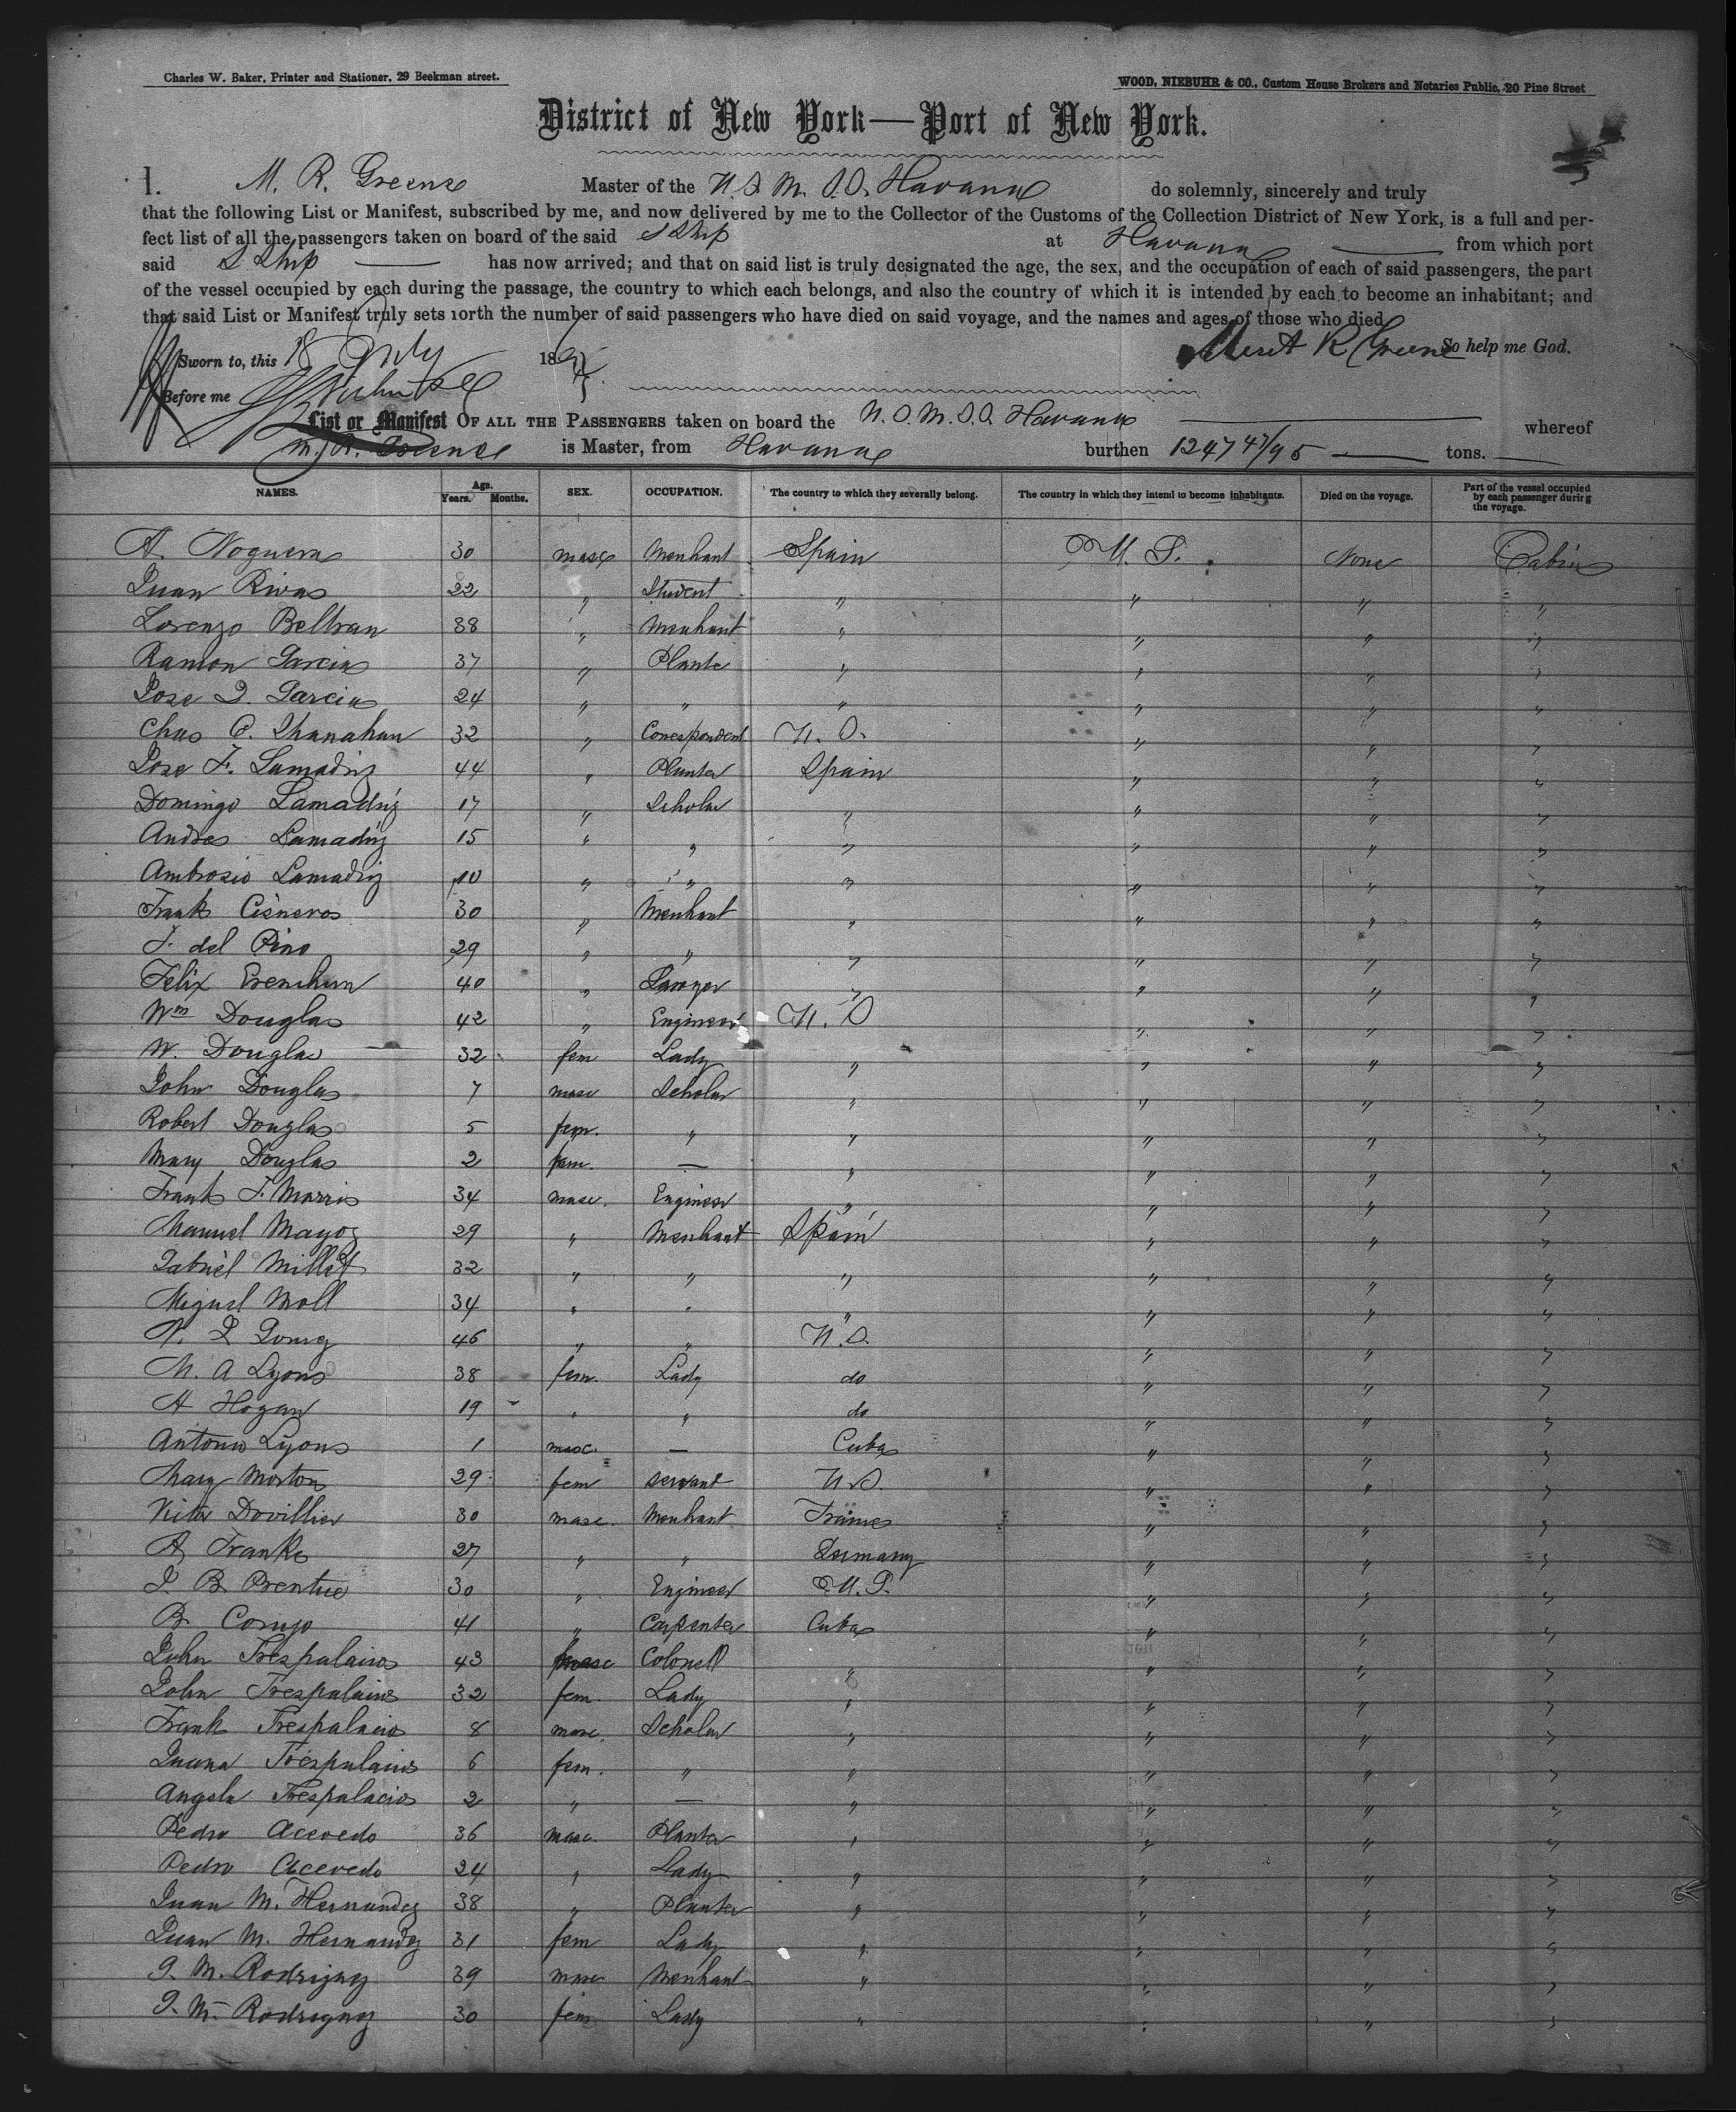 Charles W. Baker, Printer and Stationer, 29 Beekman street.
WOOD, NIEBUHR & CO., Custom House Brokers and Notaries Public, 20 Pine Street
District of New York—Port of New York.
I. M. R. Greene Master of the U. S. M. S. S. Havana do solemnly, sincerely and truly
that the following List or Manifest, subscribed by me, and now delivered by me to the Collector of the Customs of the Collection District of New York, is a full and per-
fect list of all the passengers taken on board of the said S Ship at Havana from which port
said S Ship has now arrived; and that on said list is truly designated the age, the sex, and the occupation of each of said passengers, the part
of the vessel occupied by each during the passage, the country to which each belongs, and also the country of which it is intended by each to become an inhabitant; and
that said List or Manifest truly sets forth the number of said passengers who have died on said voyage, and the names and ages of those who died
Sworn to, this 18 July 18 R Greene So help me God.
Before me
List or Manifest OF ALL THE PASSENGERS taken on board the U. S. M. S. S. Havana whereof
M. R. Greene is Master, from Havana burthen 1247 47/95 tons.
NAMES. Age. Years. Months. SEX. OCCUPATION. The country to which they severally belong. The country in which they intend to become inhabitants. Died on the voyage. Part of the vessel occupied by each passenger during the voyage.
A. Noguera 30 masc Merchant Spain U. S. None Cabin
Juan Rivas 22 " Student " " " "
Lorenzo Beltran 38 " Merchant " " " "
Ramon Garcia 37 " Planter " " " "
Jose I. Garcia 24 " " " " " "
Chas C. Shanahan 32 " Correspondent U. S. " " "
Jose F. Lamadriz 44 " Planter Spain " " "
Domingo Lamadriz 17 " Scholar " " " "
Andres Lamadriz 15 " " " " " "
Ambrosio Lamadriz 10 " " " " " "
Frank Cisneros 30 " Merchant " " " "
J. del Pino 29 " " " " " "
Felix 40 " Lawyer " " " "
Wm Douglas 42 " Engineer U. S " " "
W. Douglas 32 fem Lady " " " "
John Douglas 7 masc Scholar " " " "
Robert Douglas 5 fem. " " " " "
Mary Douglas 2 fem. — " " " "
Frank F. Morris 34 masc. Engineer " " " "
Manuel Mayoz 29 " Merchant Spain " " "
Gabriel Millet 32 " " " " " "
Miguel Moll 34 " " " " " "
46 " " U. S. " " "
M. A Lyons 38 fem. Lady do " " "
A Hogan 19 " " do " " "
Antonio Lyons 1 masc. — Cuba " " "
Mary Morton 29 fem servant U. S. " " "
Dovillier 30 masc. Merchant France " " "
A Franke 27 " " Germany " " "
J. B. Prentice 30 " Engineer U. S. " " "
B. Corujo 41 " Carpenter Cuba " " "
John Trespalacios 43 masc Colonel " " " "
John Trespalacios 32 fem. Lady " " " "
Frank Trespalacios 8 masc. Scholar " " " "
Juana Trespalacios 6 fem. " " " " "
Angela Trespalacios 2 " — " " " "
Pedro Acevedo 36 masc. Planter " " " "
Pedro Acevedo 24 " Lady " " " "
Juan M. Hernandez 38 " Planter " " " "
Juan M. Hernandez 31 fem Lady " " " "
J. M. Rodriguez 39 masc Merchant " " " "
J. M. Rodriguez 30 fem Lady " " " "